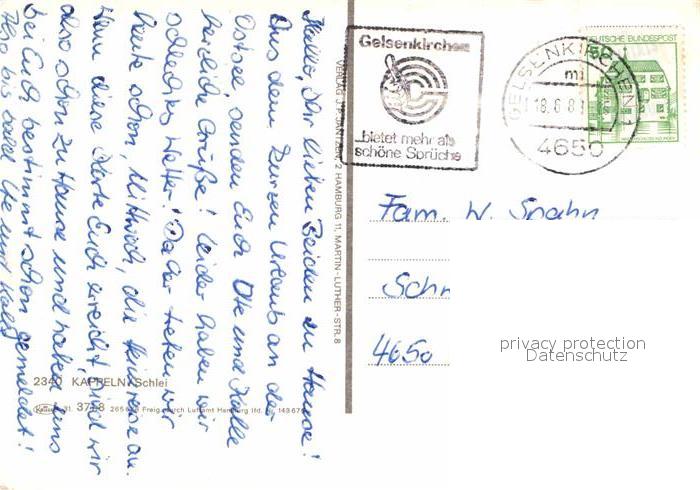 Hallo, Ihr lieben Beiden zu Hause!
Aus dem kurzen Urlaub an der
Ostsee, senden Euch Ute und Kalle
herzliche Grüße! Leider haben wir
schlechtes Wetter! Daher treten wir
heute schon, Mittwoch, die Heimreise an.
Wenn diese Karte Euch erreicht sind wir
also schon zu Hause und haben uns
bei Euch bestimmt schon gemeldet!
Also bis bald Ute und Kalle
2340 KAPPELN/Schlei
31. 3718 Freig. durch Luftamt Hamburg lfd. Nr.
VERLAG HAMBURG 11, MARTIN-LUTHER-STR. 8
Gelsenkirchen
...bietet mehr als
schöne Sprüche
GELSENKIRCHEN 1
mi
18.6.8
4650
DEUTSCHE BUNDESPOST
50
Fam. W. Spahn
Schr
4650
privacy protection
Datenschutz